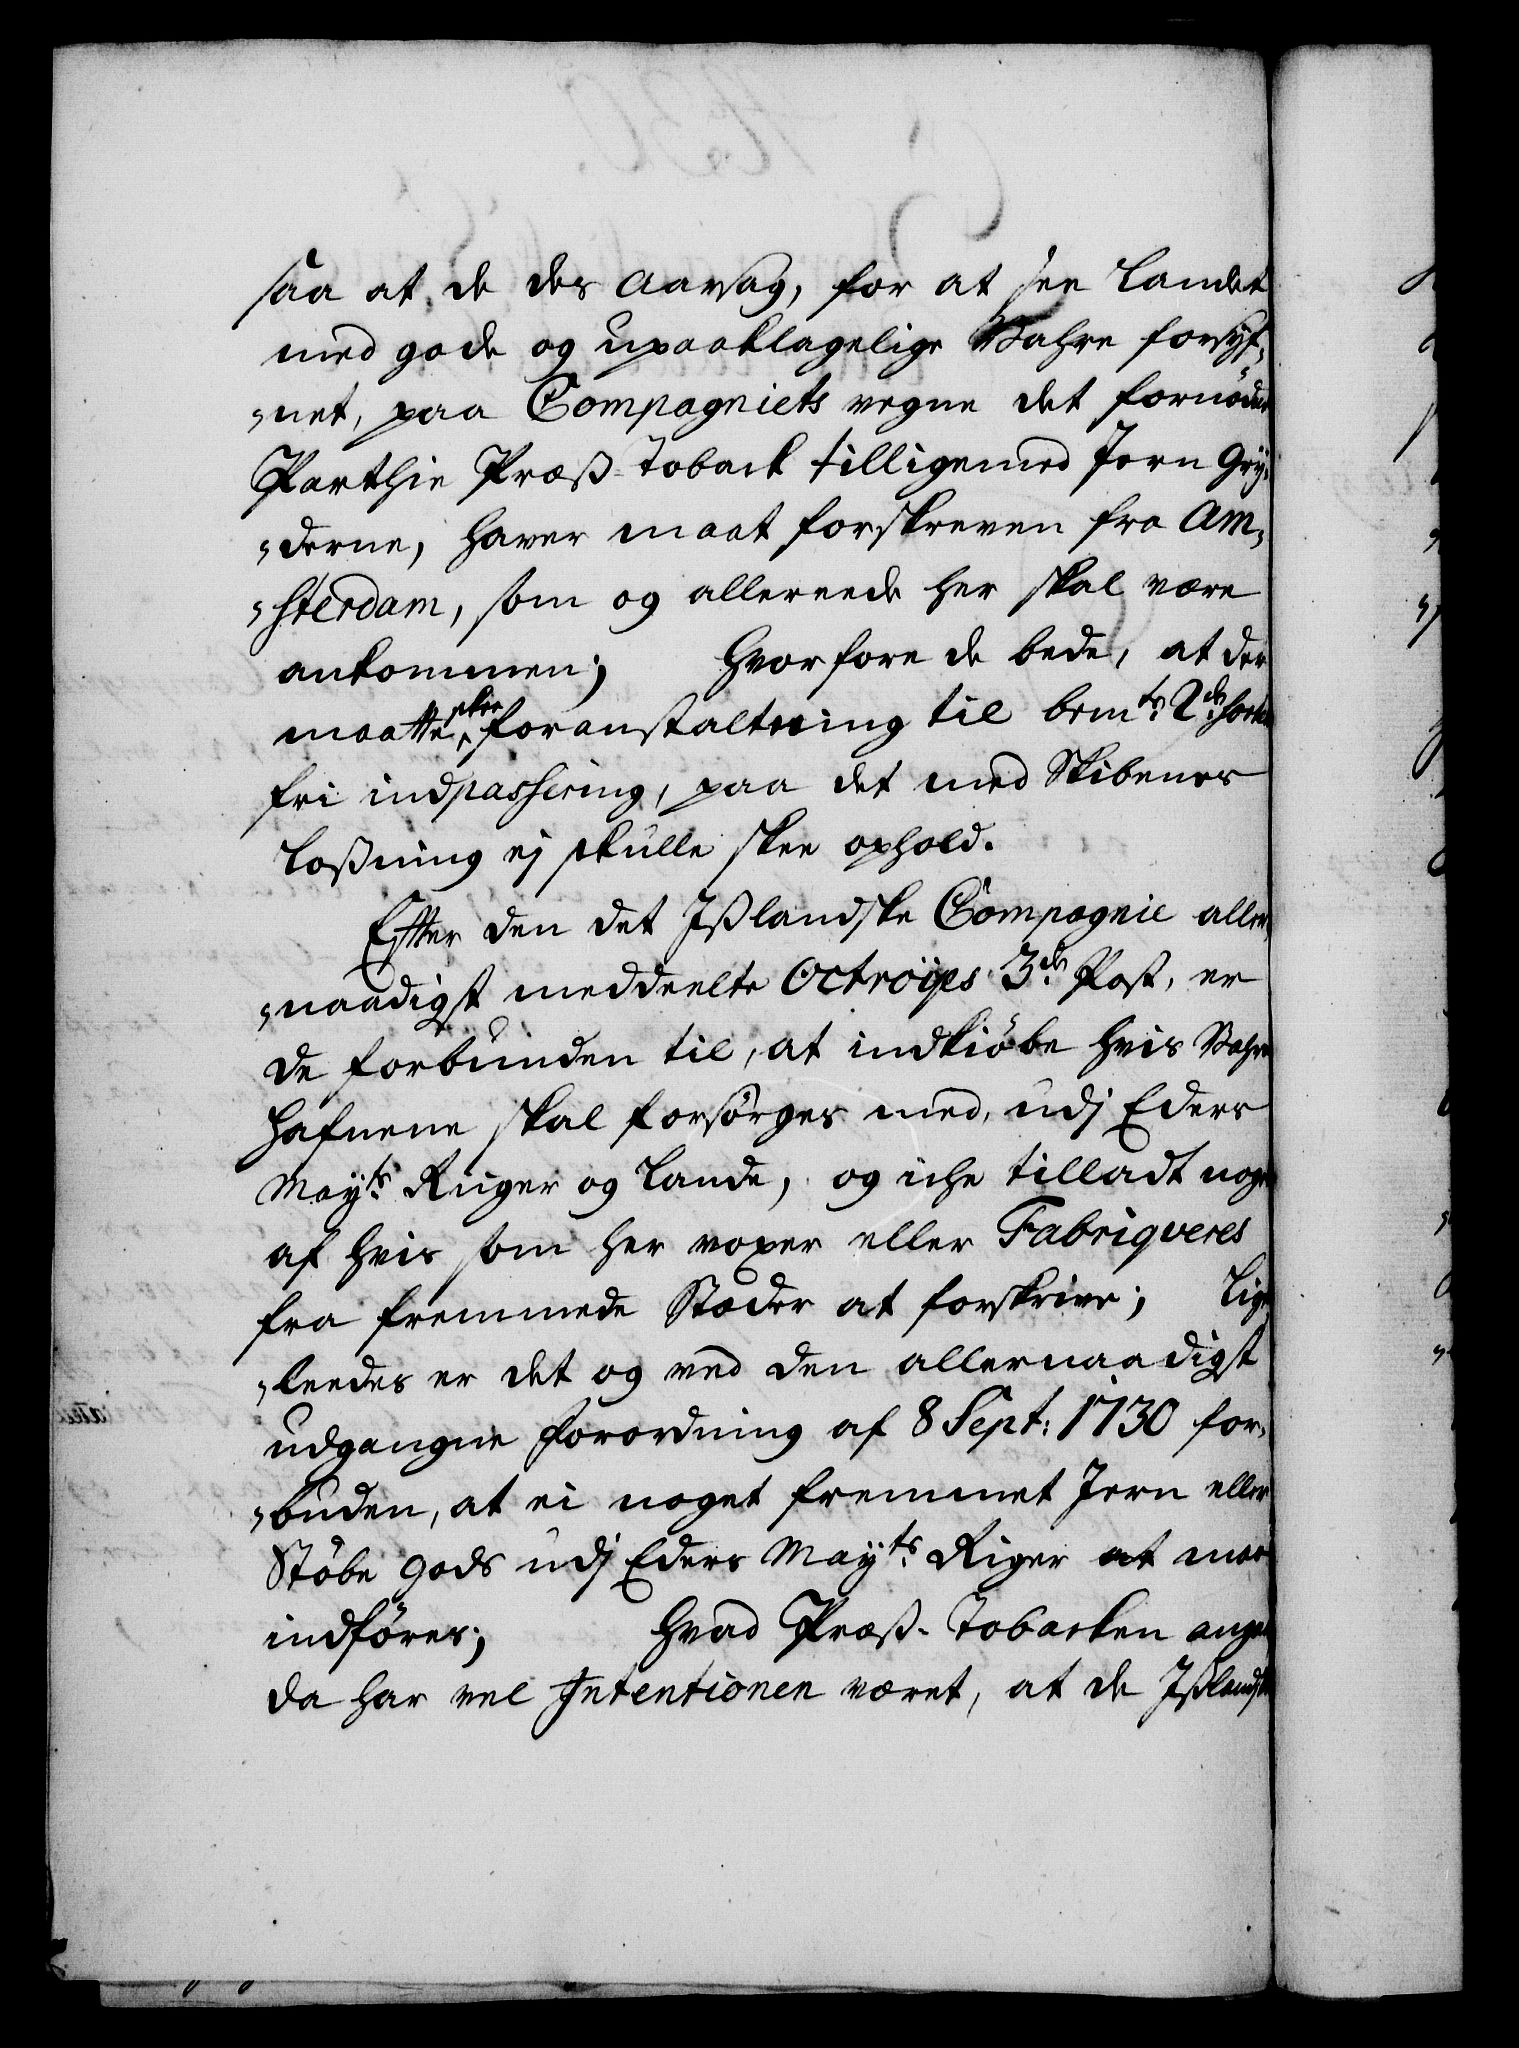 saa at de des Aarsag, for at see Landet
med gode og upaaklagelige Wahre forsyf-
-net, paa Compagniets vegne det fornødne
Parthie Præß-Toback tilligemed Jern Gry-
-derne, haver maat forskreven fra Am-
-sterdam, som og allereede her skal være
ankommen; Hvorfore de bede, at der
maatte skee foranstaltning til bemte: 2de sorter
fri indpassering, paa det med Skibenes
Loßning ej skulle skee ophold.
Efter den det Ißlandske Compagnie aller-
-naadigst meddeelte Octroÿes 3de Post, er
de forbunden til, at indkiøbe hvis Wahre
Hafnene skal forsørges med, udj Eders
Mayts Riiger og Lande, og iche tilladt noget
af hvis som her voxer eller Fabriqveres
fra fremmede Stæder at forskrive; Lige
-leedes er det og ved den allernaadigst
udgangne Forordning af 8 Sept: 1730 for-
-buden, at ei noget fremmet Jern eller
Støbe Gods udj Eders Mayts Riger at maa
indføres; Hvad Præß-Tobacken anga
da har vel Intentionen været, at de Ißlandske